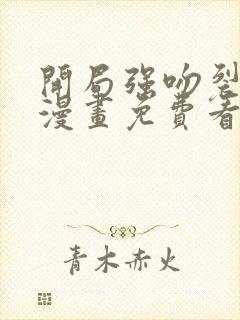 開局強吻裂
漫畫免費看
青木赤火